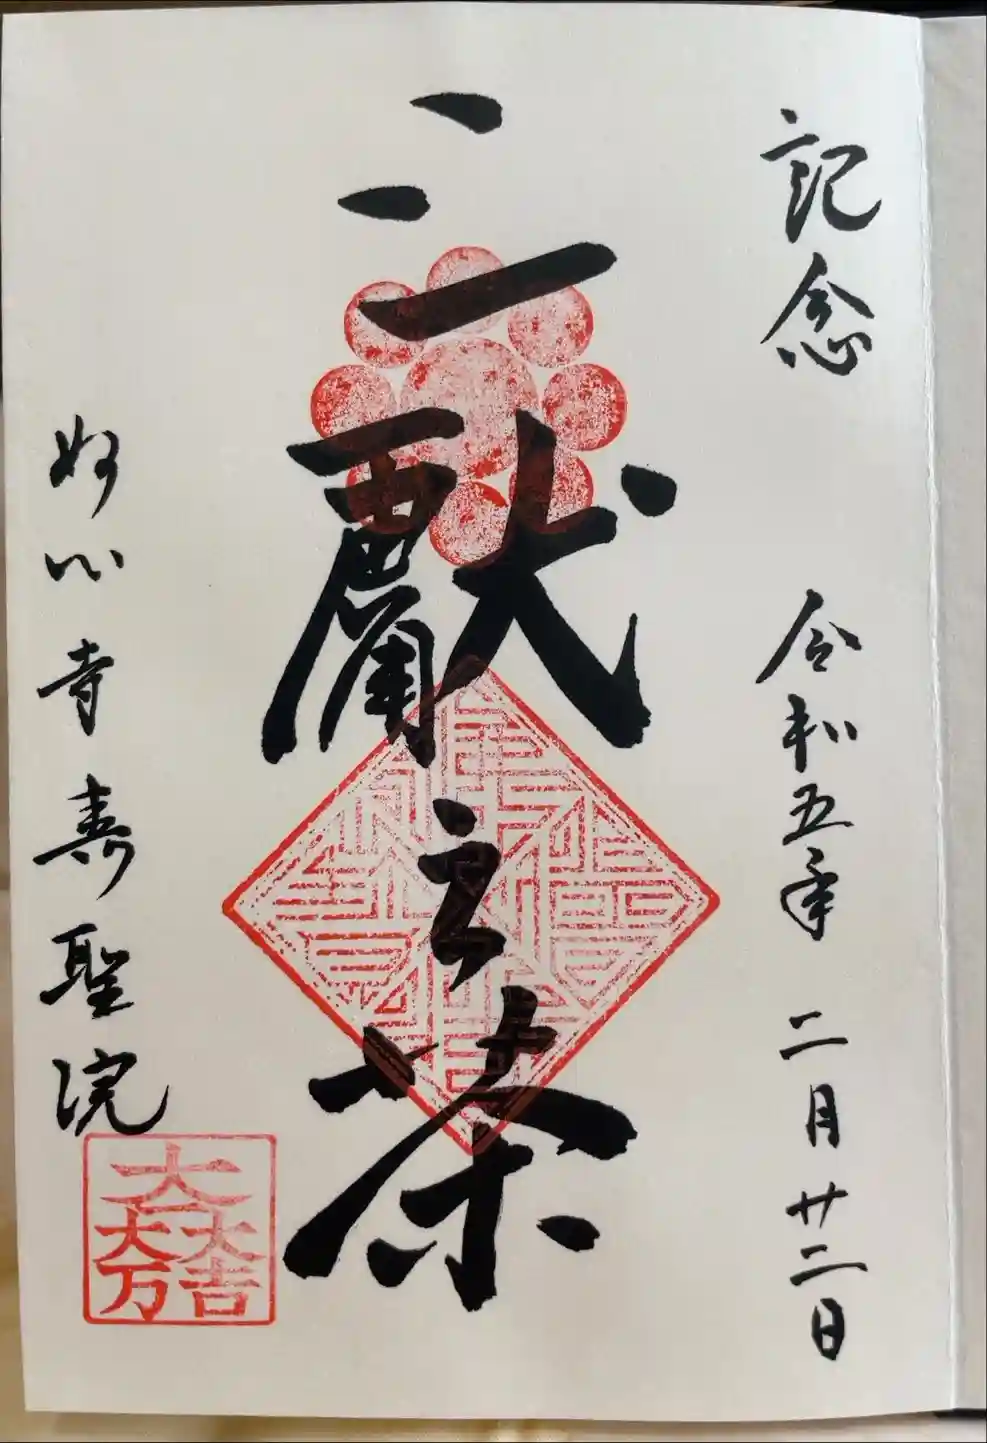 記念 令和五年 二月廿二日
三献之茶
妙心寺寿聖院
大一大万大吉